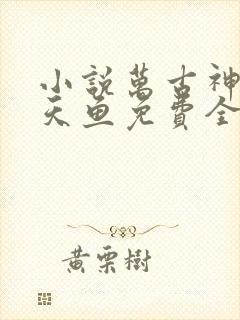 小說萬古神
天魚免費全
黃栗樹